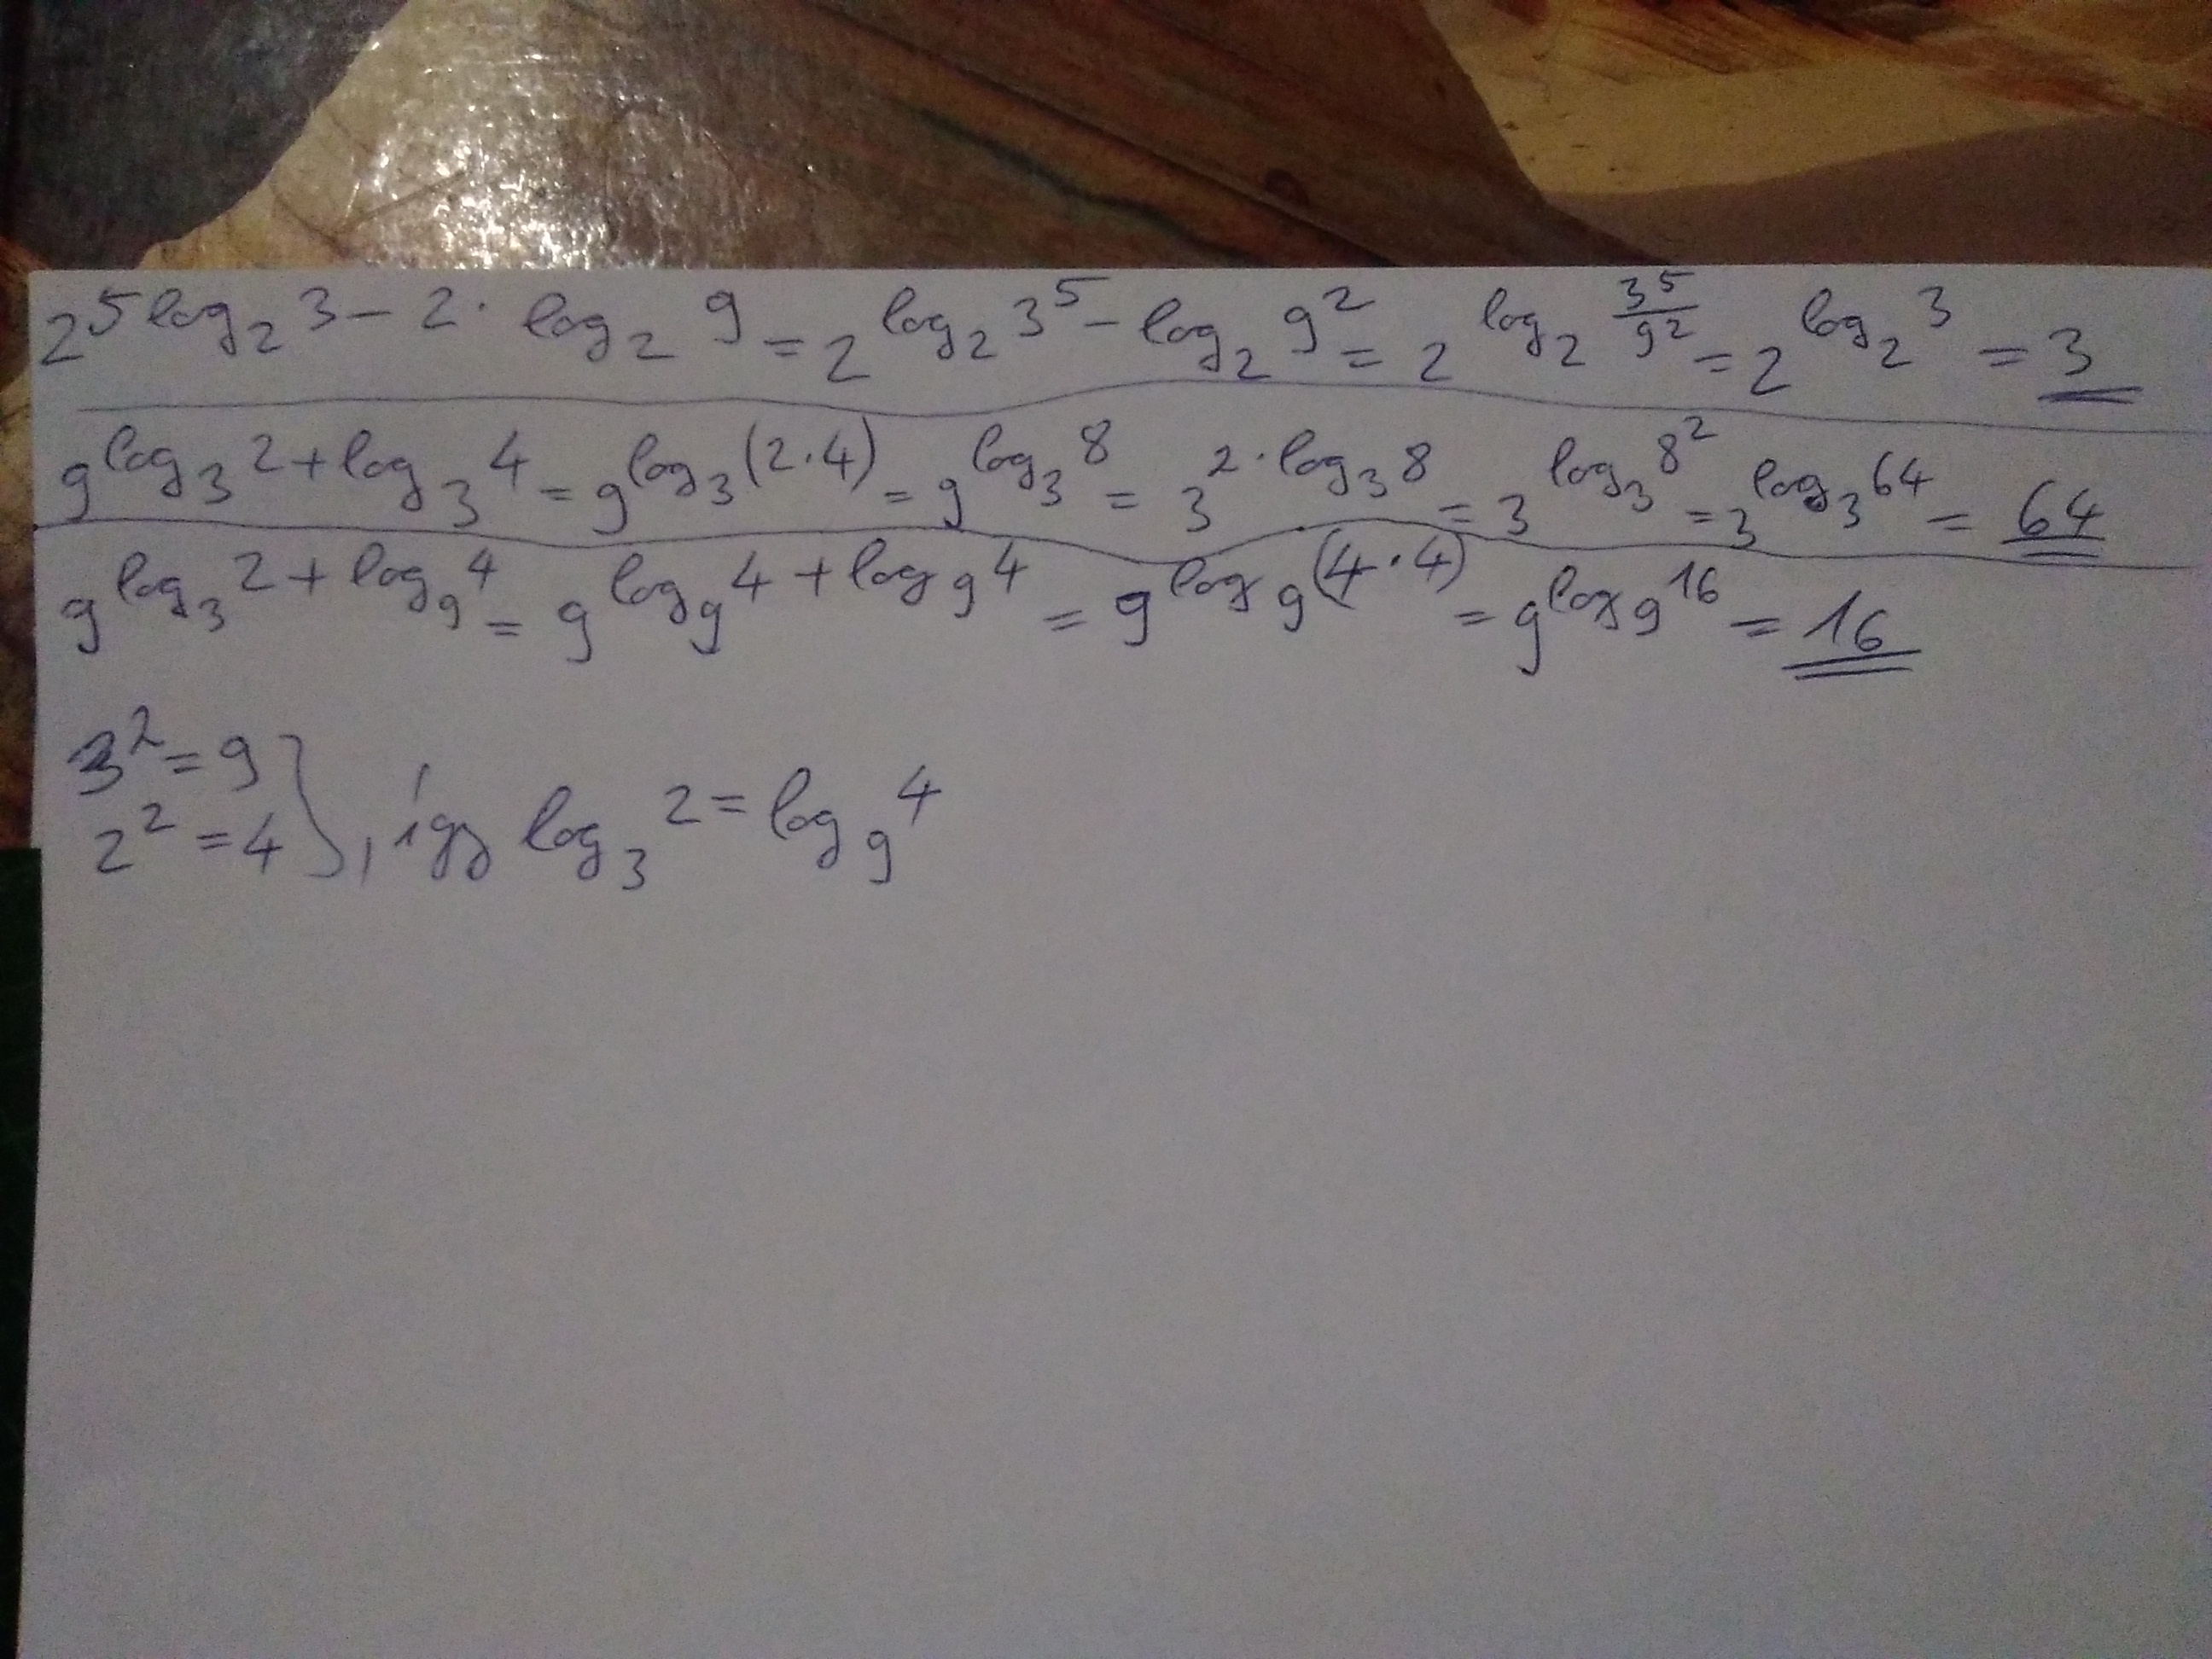 2^{5 log_2 3 - 2 · log_2 9} = 2^{log_2 3^5 - log_2 9^2} = 2^{log_2 \frac{3^5}{9^2}} = 2^{log_2 3} = 3
9^{log_3 2 + log_3 4} = 9^{log_3 (2·4)} = 9^{log_3 8} = 3^{2·log_3 8} = 3^{log_3 8^2} = 3^{log_3 64} = 64
9^{log_3 2 + log_9 4} = 9^{log_9 4 + log_9 4} = 9^{log_9 (4·4)} = 9^{log_9 16} = 16
3^2 = 9
2^2 = 4 }, így log_3 2 = log_9 4